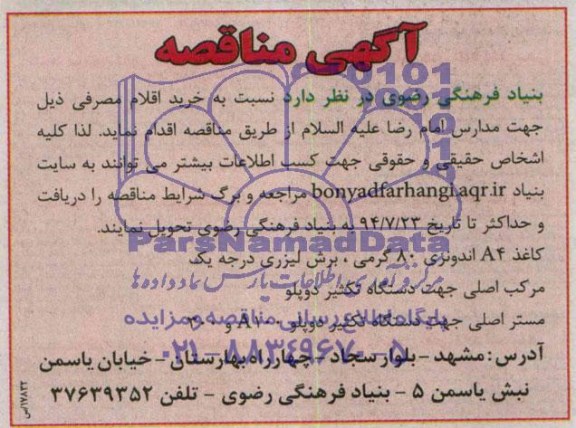 آگهی مناقصه
بنیاد فرهنگی رضوی در نظر دارد نسبت به خرید اقلام مصرفی ذیل
جهت مدارس امام رضا علیه السلام از طریق مناقصه اقدام نماید. لذا کلیه
اشخاص حقیقی و حقوقی جهت کسب اطلاعات بیشتر می توانند به سایت
بنیاد bonyadfarhangi.aqr.ir مراجعه و برگ شرایط مناقصه را دریافت
و حداکثر تا تاریخ ۹۴/۷/۲۳ به بنیاد فرهنگی رضوی تحویل نمایند.
ParsNamadData
کاغذ A۴ اندونزی ۸۰ گرمی ، برش لیزری درجه یک
مرکز فرآوری اطلاعات پارس نماد داده ها
مرکب اصلی جهت دستگاه تکثیر دوپلو
پایگاه اطلاع رسانی مناقصه و مزایده
مستر اصلی جهت دستگاه تکثیر دوپلو
۰۲۱-۸۸۳۴۹۶۷۰-۵
آدرس: مشهد - بلوار سجاد - چهارراه بهارستان - خیابان یاسمن
نبش یاسمن ۵ - بنیاد فرهنگی رضوی - تلفن ۳۷۶۳۹۳۵۲